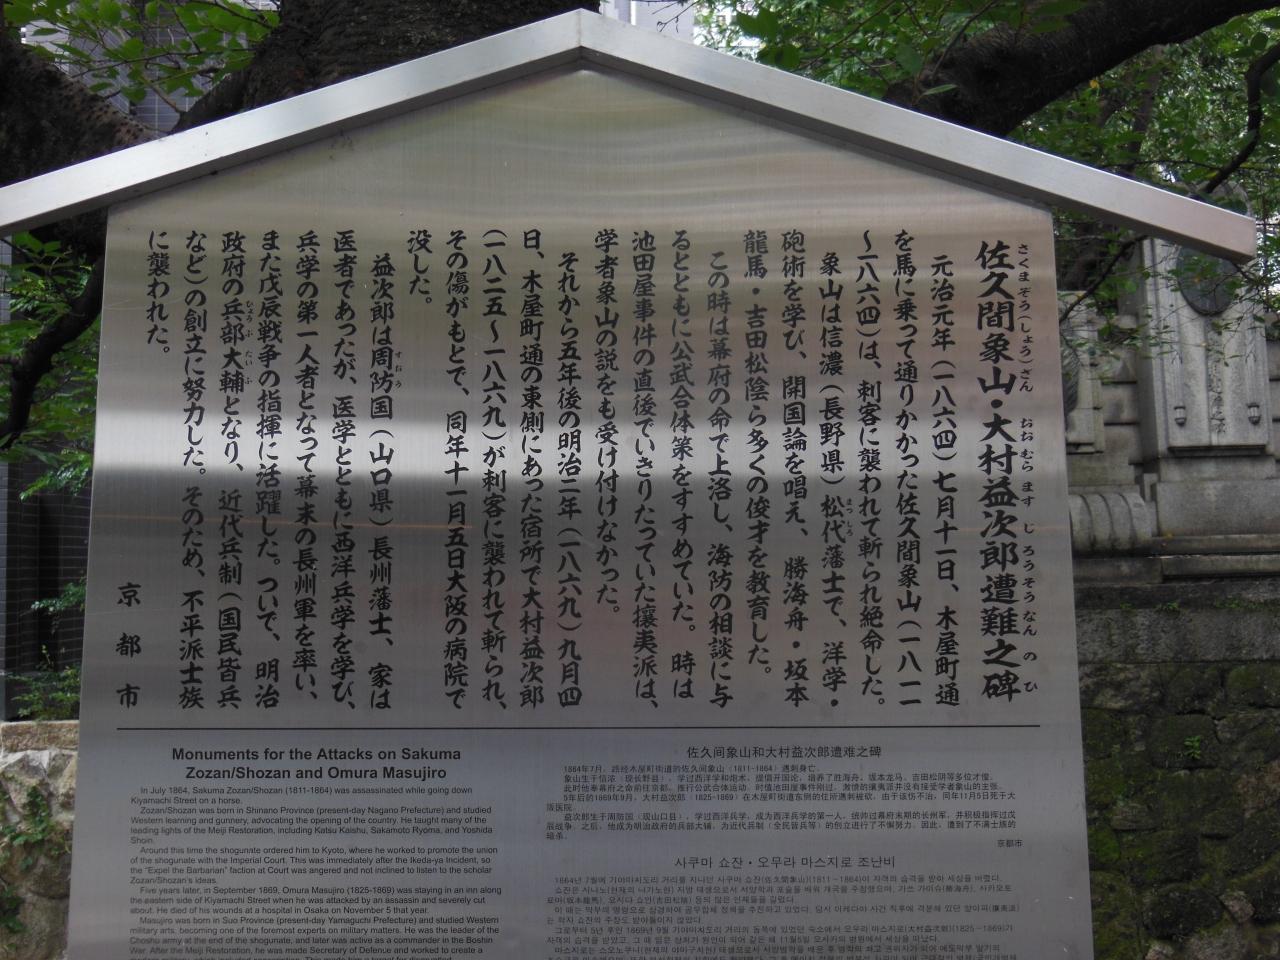 佐久間象山・大村益次郎遭難之碑
さくまぞう(しょう)ざん おおむらますじろうそうなんのひ
元治元年(一八六四)七月十一日、木屋町通
を馬に乗って通りかかった佐久間象山(一八一一
〜一八六四)は、刺客に襲われて斬られ絶命した。
象山は信濃(長野県)松代藩士で、洋学・
まつしろ
砲術を学び、開国論を唱え、勝海舟・坂本
龍馬・吉田松陰ら多くの俊才を教育した。
この時は幕府の命で上洛し、海防の相談に与
るとともに公武合体策をすすめていた。時は
池田屋事件の直後でいきりたっていた攘夷派は、
学者象山の説をも受け付けなかった。
それから五年後の明治二年(一八六九)九月四
日、木屋町通の東側にあった宿所で大村益次郎
(一八二五〜一八六九)が刺客に襲われて斬られ、
その傷がもとで、同年十一月五日大阪の病院で
没した。
益次郎は周防国(山口県)長州藩士、家は
すおう
医者であったが、医学とともに西洋兵学を学び、
兵学の第一人者となって幕末の長州軍を率い、
また戊辰戦争の指揮に活躍した。ついで、明治
政府の兵部大輔となり、近代兵制(国民皆兵
ひょうぶたいふ
など)の創立に努力した。そのため、不平派士族
に襲われた。
京都市
Monuments for the Attacks on Sakuma
Zozan/Shozan and Omura Masujiro
In July 1864, Sakuma Zozan/Shozan (1811-1864) was assassinated while going down
Kiyamachi Street on a horse.
Zozan/Shozan was born in Shinano Province (present-day Nagano Prefecture) and studied
Western learning and gunnery, advocating the opening of the country. He taught many of the
leading lights of the Meiji Restoration, including Katsu Kaishu, Sakamoto Ryoma, and Yoshida
Shoin.
Around this time the shogunate ordered him to Kyoto, where he worked to promote the union
of the shogunate with the Imperial Court. This was immediately after the Ikeda-ya Incident, so
the "Expel the Barbarian" faction at Court was angered and not inclined to listen to the scholar
Zozan/Shozan's ideas.
Five years later, in September 1869, Omura Masujiro (1825-1869) was staying in an inn along
the eastern side of Kiyamachi Street when he was attacked by an assassin and severely cut
about. He died of his wounds at a hospital in Osaka on November 5 that year.
Masujiro was born in Suo Province (present-day Yamaguchi Prefecture) and studied Western
military arts, becoming one of the foremost experts on military matters. He was the leader of the
Choshu army at the end of the shogunate, and later was active as a commander in the Boshin
War. After the Meiji Restoration, he was made Secretary of Defence and worked to create a
佐久间象山和大村益次郎遭难之碑
1864年7月，路经木屋町街道的佐久间象山（1811-1864）遇刺身亡。
象山生于信浓（现长野县），学过西洋学和炮术，提倡开国论，培养了胜海舟、坂本龙马、吉田松阴等多位才俊。
此时他奉幕府之命前往京都，推行公武合体运动。时值池田屋事件刚过，激愤的攘夷派并没有接受学者象山的主张。
5年后的1869年9月，大村益次郎（1825-1869）在木屋町街道东侧的住所遇刺被砍，由于该伤不治，同年11月5日死于大
阪医院。
益次郎生于周防国（现山口县），学过西洋兵学，成为西洋兵学的第一人，统帅过幕府末期的长州军，并积极指挥过戊
辰战争。之后，他成为明治政府的兵部大辅，为近代兵制（全民皆兵等）的创立进行了不懈努力，因此，遭到了不满士族的
暗杀。
京都市
사쿠마 쇼잔・오무라 마스지로 조난비